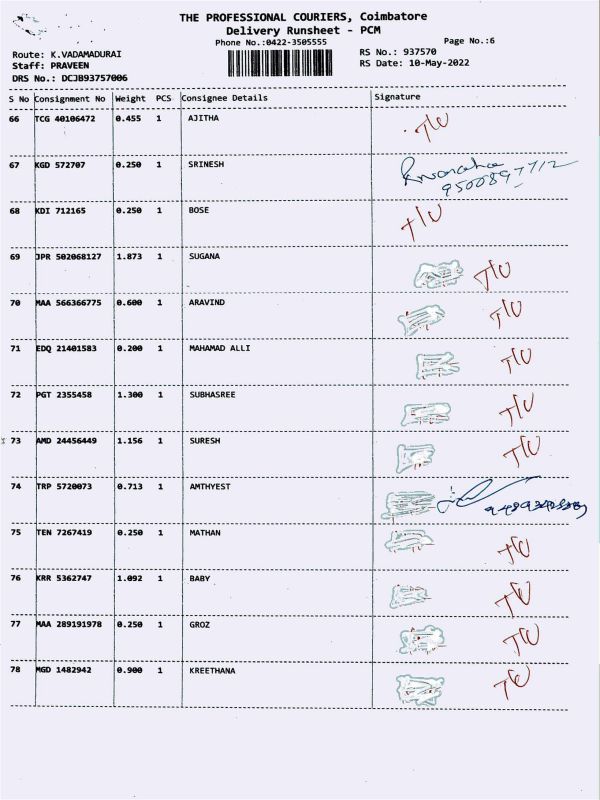 THE PROFESSIONAL COURIERS, Coimbatore
Delivery Runsheet - PCM
Phone No.:0422-3505555
Page No.:6
Route: K.VADAMADURAI
RS No.: 937570
Staff: PRAVEEN
RS Date: 10-May-2022
DRS No.: DCJB93757006
S No Consignment No Weight PCS Consignee Details Signature
66 TCG 40106472 0.455 1 AJITHA T/U
67 KGD 572707 0.250 1 SRINESH
9500897712
68 KDI 712165 0.250 1 BOSE T/U
69 JPR 502068127 1.873 1 SUGANA T/U
70 MAA 566366775 0.600 1 ARAVIND T/U
71 EDQ 21401583 0.200 1 MAHAMAD ALLI T/U
72 PGT 2355458 1.300 1 SUBHASREE T/U
73 AMD 24456449 1.156 1 SURESH T/U
74 TRP 5720073 0.713 1 AMTHYEST
75 TEN 7267419 0.250 1 MATHAN T/U
76 KRR 5362747 1.092 1 BABY T/U
77 MAA 289191978 0.250 1 GROZ T/U
78 MGD 1482942 0.900 1 KREETHANA T/U